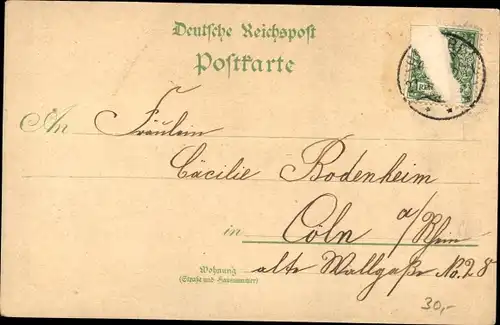 Deutsche Reichspost
Postkarte
An Fräulein
Cäcilie Bodenheim
in Cöln a/Rhein
Wohnung
(Straße und Hausnummer)
alte Wallgaße No. 28
30,-